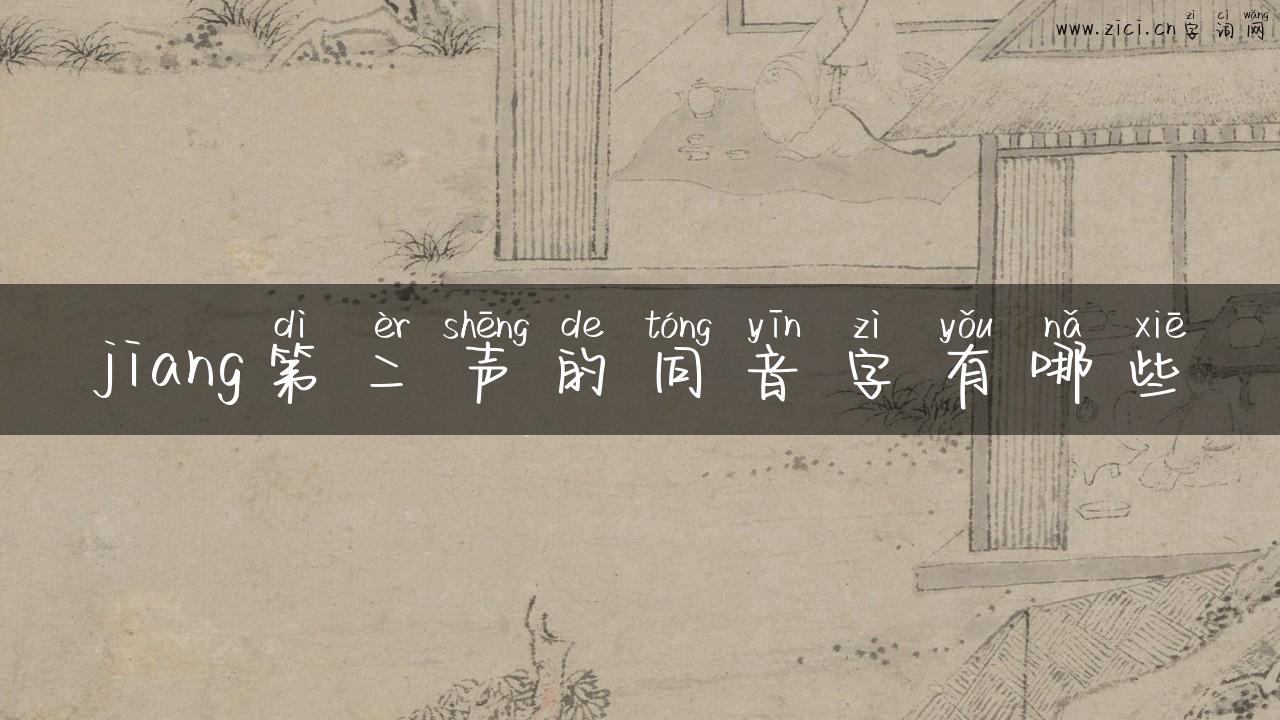 zì cí wǎng
www.zici.cn 字词网
dì èr shēng de tóng yīn zì yǒu nǎ xiē
jiang第二声的同音字有哪些